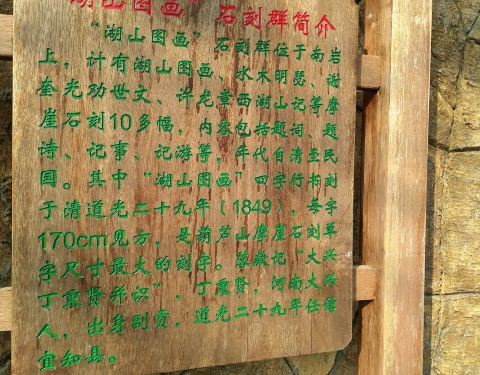 湖山图画”石刻群简介
“湖山图画”石刻群位于南岩
上，计有湖山图画、水木明瑟、谢
奎光劝世文、许龙章西湖山记等摩
崖石刻10多幅，内容包括题词、题
诗、记事、记游等，年代自清至民
国。其中“湖山图画”四字行书刻
于清道光二十九年（1849），每字
170cm见方，是葫芦山摩崖石刻单
字尺寸最大的刻字。落款记“大兴
丁聚贤并识”，丁聚贤，河南大兴
人，出身副贡，道光二十九年任信
宜知县。